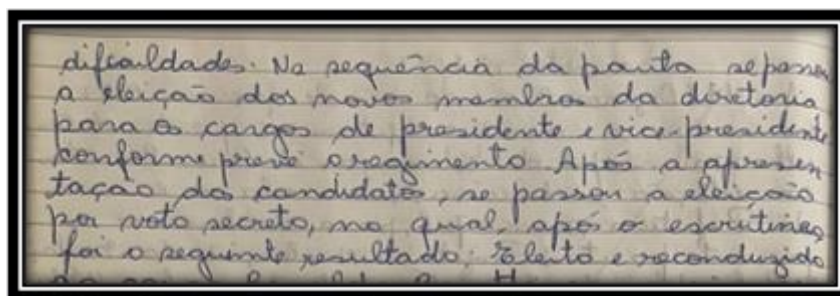 dificuldades. Na sequência da pauta se passou
a eleição dos novos membros da diretoria
para os cargos de presidente e vice-presidente
conforme prevê o regimento. Após a apresen
tação dos candidatos, se passou a eleição
por voto secreto, no qual, após o escrutínio,
foi o seguinte resultado: Eleito e reconduzido